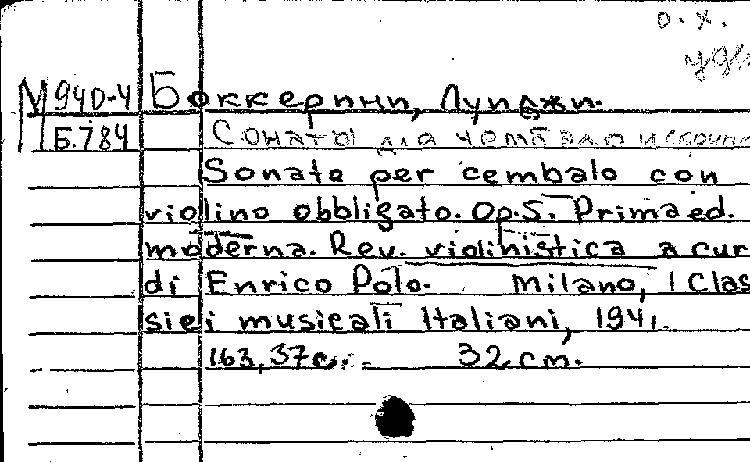 о.х.
М 940-4 Боккерини, Луиджи.
Б.784 Сонаты для чембало и скрип
Sonate per cembalo con
violino obbligato. Op.5. Prima ed.
moderna. Rev. violinistica a cur
di Enrico Polo. Milano, I Clas
sici musicali Italiani, 1941.
163, 37c. 32 cm.